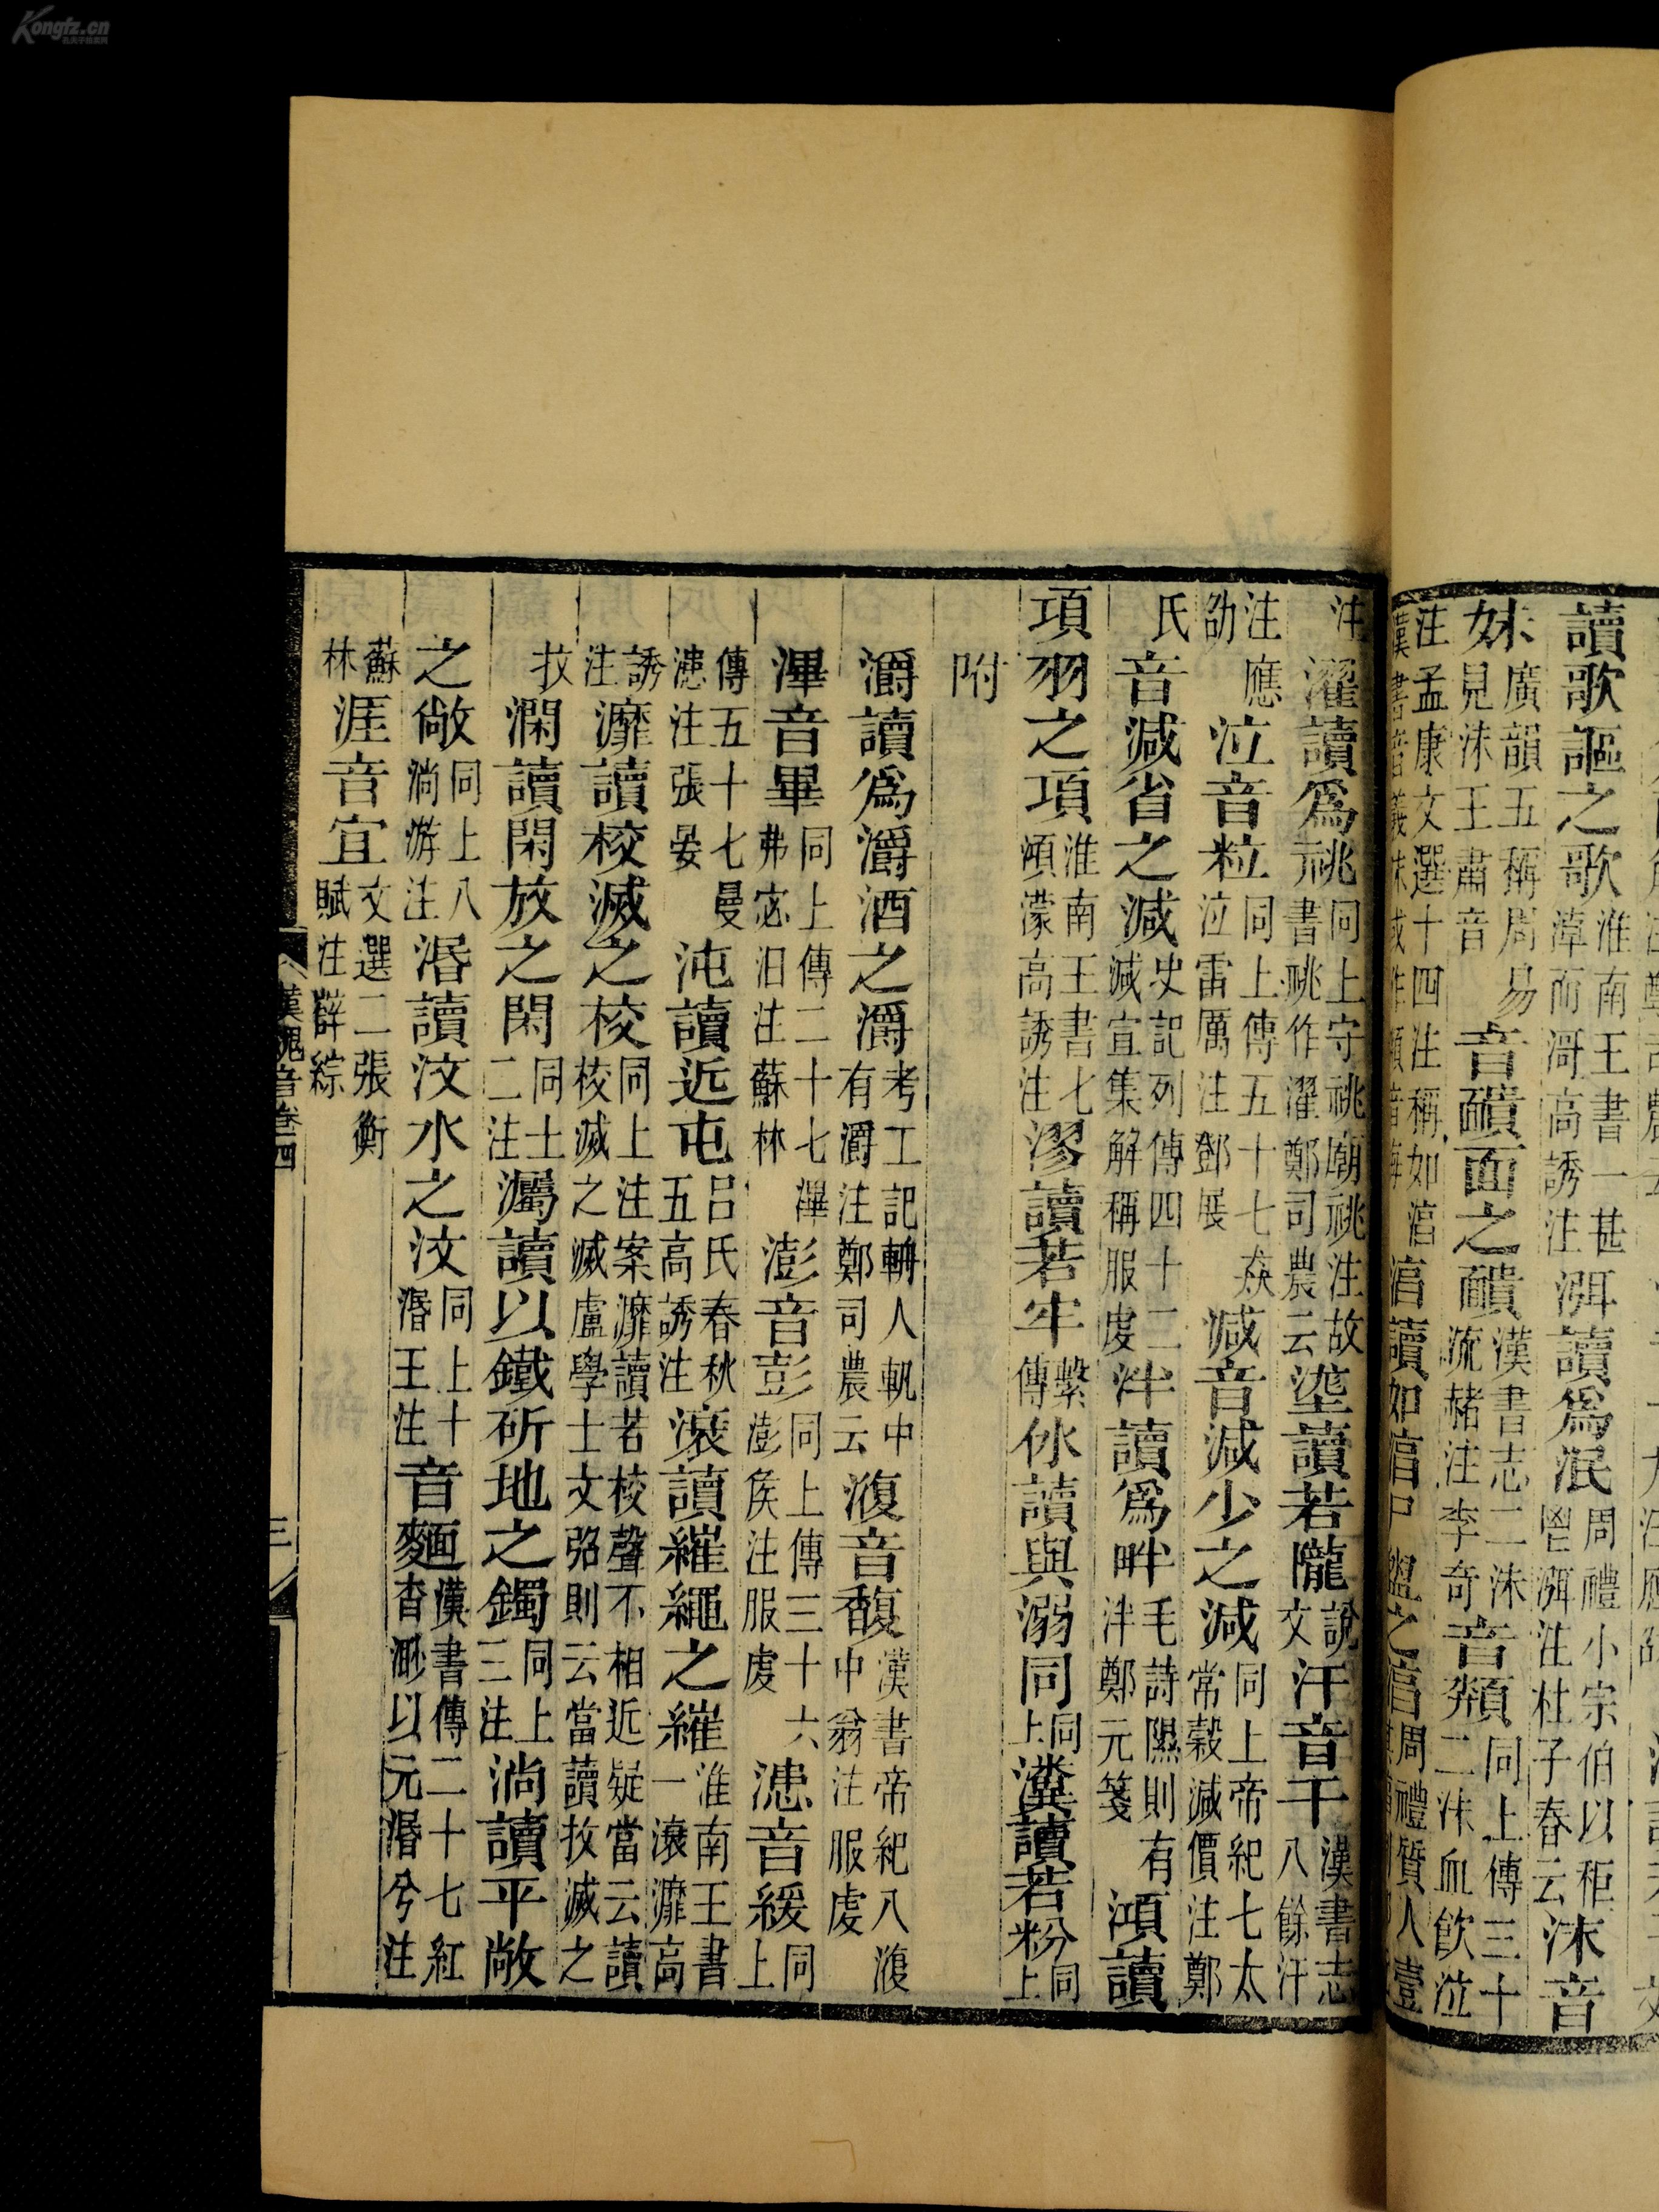 讀歌謳之歌淮南王書一甚淖而滒高誘注 渳讀爲泯周禮小宗伯以秬鬯渳注杜子春云 沬音
妹廣韻五稱周易見沬王肅音 音靧面之靧漢書志二沬流赭注李奇 音頮同上傳三十二沬血飲泣
注孟康文選十四注稱如淳 淳讀如淳尸盥之淳周禮質人壹
注 濯讀爲祧同上守祧廟祧注故書祧作濯鄭司農云 𡐨讀若隴說文 汗音干漢書志八餘汗
注應劭 泣音粒同上傳五十七猋泣雷厲注鄧展 減音減少之減同上帝紀七太常穀減價注鄭
氏 音減省之減史記列傳四十二減宣集解稱服虔 泮讀爲畔毛詩隰則有泮鄭元箋 澒讀
項羽之項淮南王書七澒濛高誘注 漻讀若牢繫傳 㲻讀與溺同同上 瀵讀若粉同上
附
灂讀爲灂酒之灂考工記輈人軓中有灂注鄭司農云 澓音馥漢書帝紀八澓中翁注服虔
滭音畢同上傳二十七滭弗宓汨注蘇林 澎音彭同上傳三十六澎侯注服虔 漶音緩同上
傳五十七曼漶注張晏 沌讀近屯呂氏春秋五高誘注 滾讀維繩之維淮南王書一滾灖高
誘注 灖讀校滅之校同上注案灖讀若校聲不相近疑當云讀校滅之滅盧學士文弨則云當讀抆滅之
抆 瀾讀閑放之閑同上二注 濁讀以鐵斫地之鐲同上三注 淌讀平敞
之敞同上八淌游注 湣讀汶水之汶同上十湣王注 音麵漢書傳二十七紅杳渺以元湣兮注
蘇林 涯音宜文選二張衡賦注薛綜
漢魏音卷四
三
Kongfz.cn